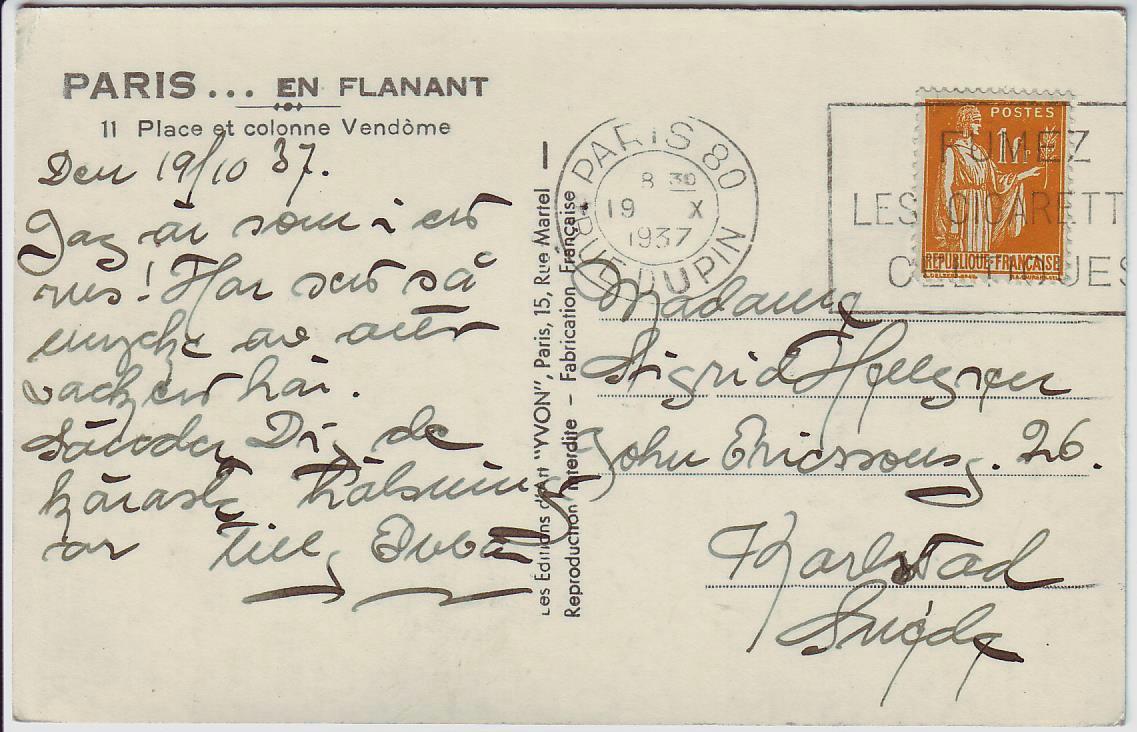 PARIS... EN FLANANT
11 Place et colonne Vendôme
Den 19/10 37.
Jag är som i ett
rus! Har sett så
mycke av allt
vackert här.
Sänder Dig de
käraste hälsning-
ar Tilly
Les Editions d'Art "YVON", Paris, 15, Rue Martel —
Reproduction Interdite — Fabrication Française
PARIS 80
8 30
19 X
1937
RUE DUPIN
FUMEZ
LES CIGARETT
CELTIQUES
POSTES
1f
REPUBLIQUE FRANÇAISE
Madame
Sigrid Hellgren
John Ericssonsg. 26.
Karlstad
Suède